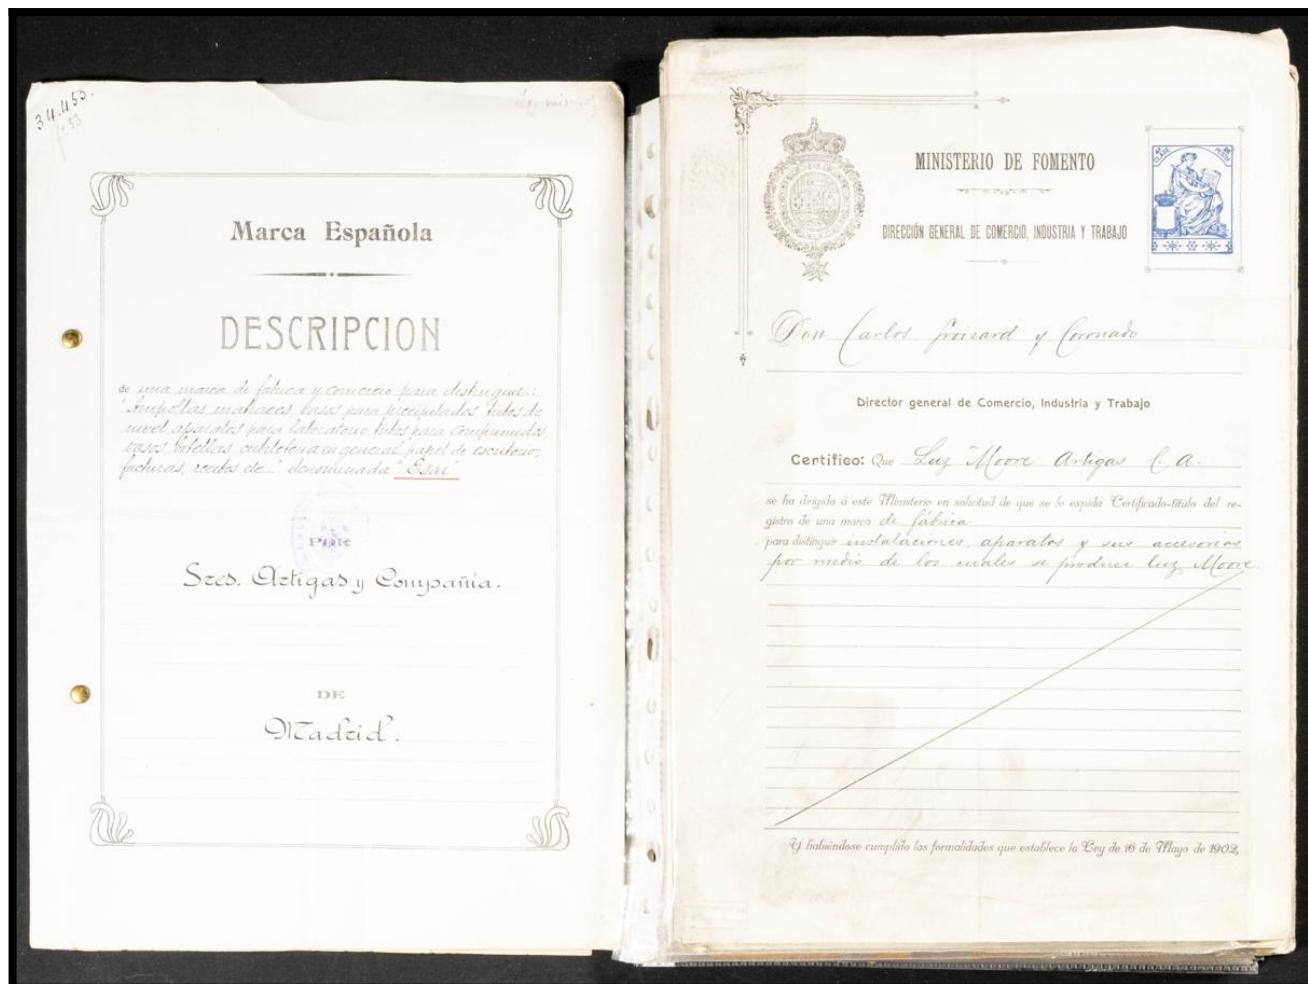 34.453.
Marca Española
DESCRIPCION
de una marca de fabrica y comercio para distinguir:
"Ampollas, matraces, vasos para precipitados, tubos de
nivel, aparatos para laboratorio, tubos para comprimidos,
vasos, botellas, cristalería en general, papel de escritorio,
facturas, etc." denominada "Esar"
POR
Sres. Artigas y Compañia.
DE
Madrid.
MINISTERIO DE FOMENTO
DIRECCIÓN GENERAL DE COMERCIO, INDUSTRIA Y TRABAJO
Don Carlos Groizard y Coronado
Director general de Comercio, Industria y Trabajo
Certifico: Que Luz Moore Artigas C. A.
se ha dirigido á este Ministerio en solicitud de que se le expida Certificado-título del re-
gistro de una marca de fábrica
para distinguir instalaciones, aparatos y sus accesorios
por medio de los cuales se produce luz Moore.
Y habiéndose cumplido las formalidades que establece la Ley de 16 de Mayo de 1902,